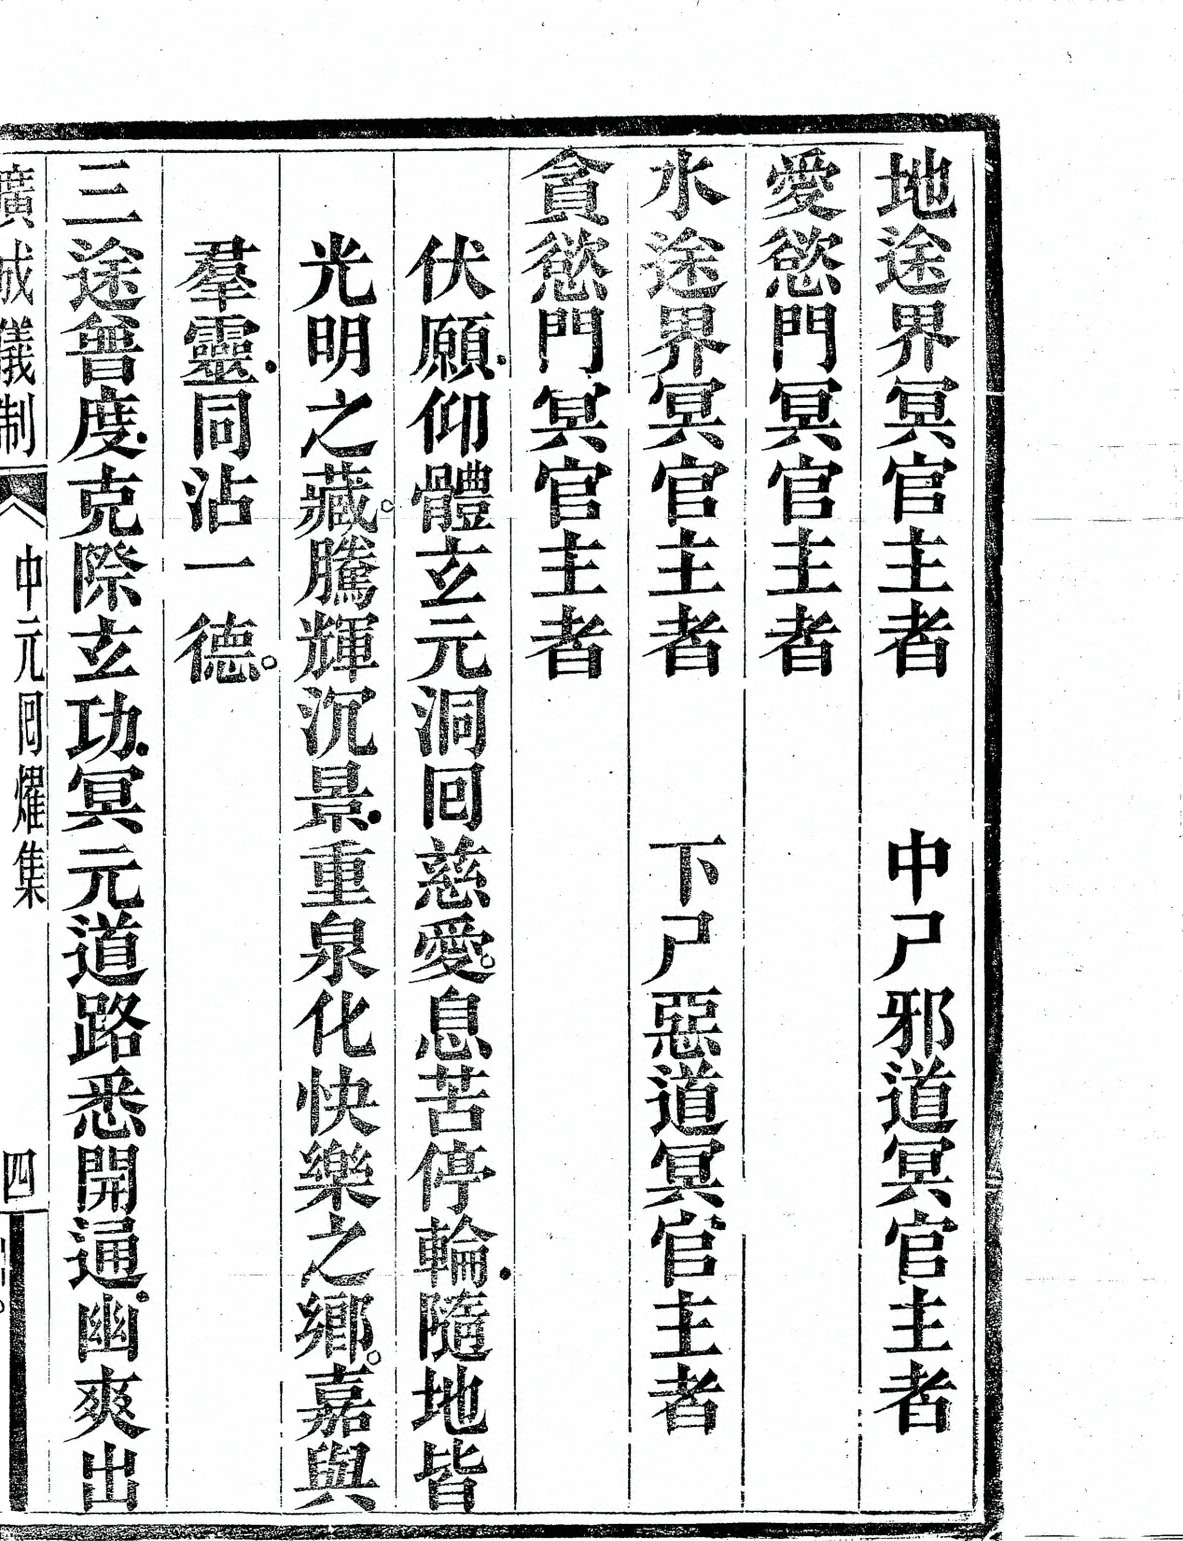 地途界冥官主者　　中尸邪道冥官主者
愛慾門冥官主者
水途界冥官主者　　下尸惡道冥官主者
貪慾門冥官主者
伏願仰體玄元洞回慈愛息苦停輪隨地皆
光明之藏騰輝沉景重泉化快樂之鄉嘉與
羣靈同沾一德
三途普度克際玄功冥元道路悉開通幽爽出
廣成儀制　中元回耀集　四